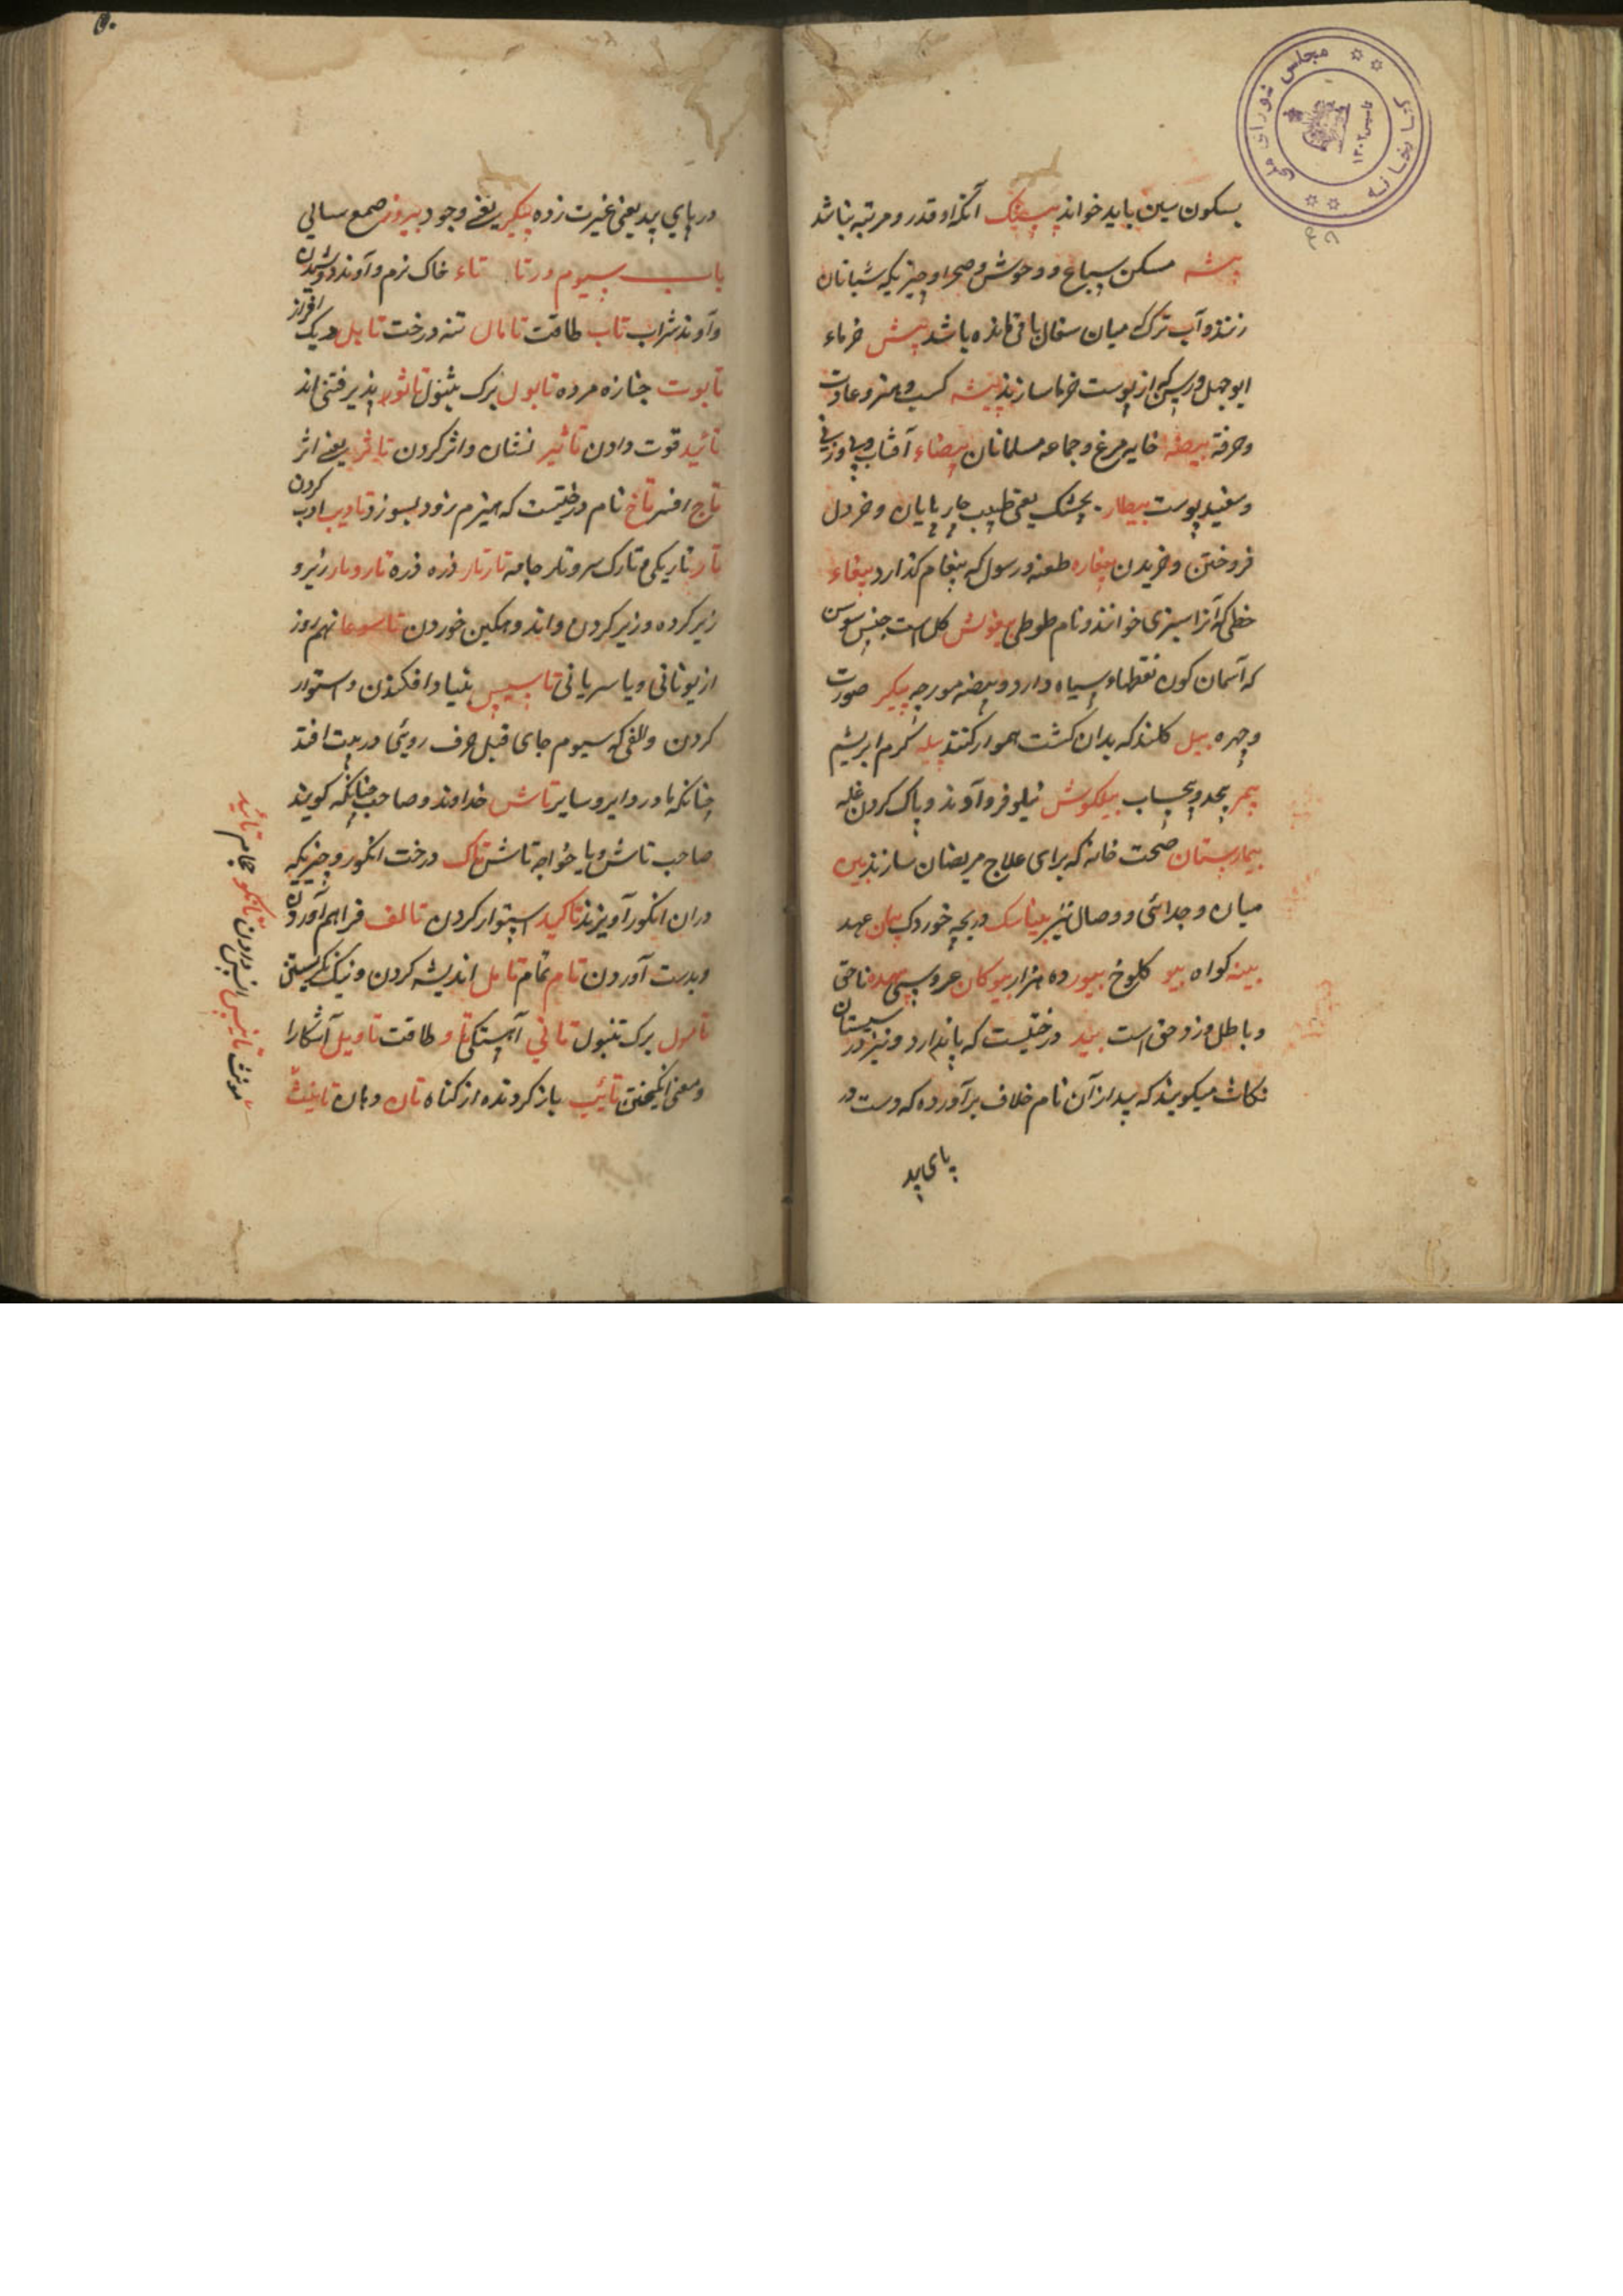 بسکون سین باید خواند آنکه او قدر و مرتبه نباشد
بیشه مسکن سباع و وحوش و صحرا و چیزیکه شبانان
زنند و آب ترک میان سفال باقی مانده باشد پیش خرماء
ابوجهل و رسن که از پوست خرما سازند پیشه کسب و هنر و عادت
و حرفة بیضه خایه مرغ و جماعه مسلمانان بیضاء آفتاب و
و سفید پوست بیطار بچشک یعنی طبیب چارپایان و خر دل
فروختن و خریدن بیغاره طعنه و رسول که پیغام گذارد ببغاء
خطی که آنرا سبزی خوانند و نام طوطی پیغولش گل است جنس سوسن
که آسمان کون نقطهاء سیاه دارد و بیضه مورچه پیکر صورت
و چهره بیل کلند که بدان کشت هموار کنند پیله کرم ابریشم
بیمر بیحد و بیحساب پیلکوش نیلوفر و آوند و پاک کردن غله
بیمارستان صحت خانه که برای علاج مریضان سازند بین
میان و جدائی و وصال نیز بیناسک دریچه خوردک پیمان عهد
بینه کواه بیو کلوخ بیور ده هزار بیوکان عروسی بیهده ناحق
و باطل و زوحق است بید درختیست که پاندارد و نیز در سیستان
نکاث میکویند که پیداز آن نام خلاف برآورده که دست در
پای پید
۵۰
در پای پید یعنی غیرت زده پیکر یعنی وجود بیروز صمع سیالی
باب سیوم در تا تاء خاک نرم و آوند دوشیدن
و آوند شراب تاب طاقت تامال تنه درخت تابل دیک افزار
تابوت جنازه مرده تابول برک تنبول تاثور پذیرفتنی اند
تائید قوت دادن تأثیر نشان و اثر کردن تاثر یعنی اثر کردن
تاج افسر تاخ نام درختیست که هیزم زود بسوزد تادیب ادب
تار تاریکی و تارک سر و تار جامه تارتار ذره ذره تارومار زیر و
زیر کرده و زیر کردن و اندوهکین خوردن تاسوعا نهم روز
از یونانی و یا سریانی تاسیس بنیاد افکندن و استوار
کردن و الفی که سیوم جای قبل حرف روئی در بیت افتد
چنانکه نادر و دایر و سایر تاش خداوند و صاحب چنانکه کویند
صاحب تاش و یا خواجه تاش تاک درخت انکور و چیزیکه
دران انکور آویزند تاکید استوار کردن تالف فراهم آوردن
و بدست آوردن تام تمام تامل اندیشه کردن و نیک نکریستن
تامول برک تنبول تانی آهستکی تاو طاقت تاویل آشکارا
و معنی انکیختن تائیب باز کردنده از کناه تان دهان تانیث
مونث تانیس انیس دادن تانکو حجام تائید
کتابخانه مجلس شورای ملی
تاسیس ۱۳۰۲